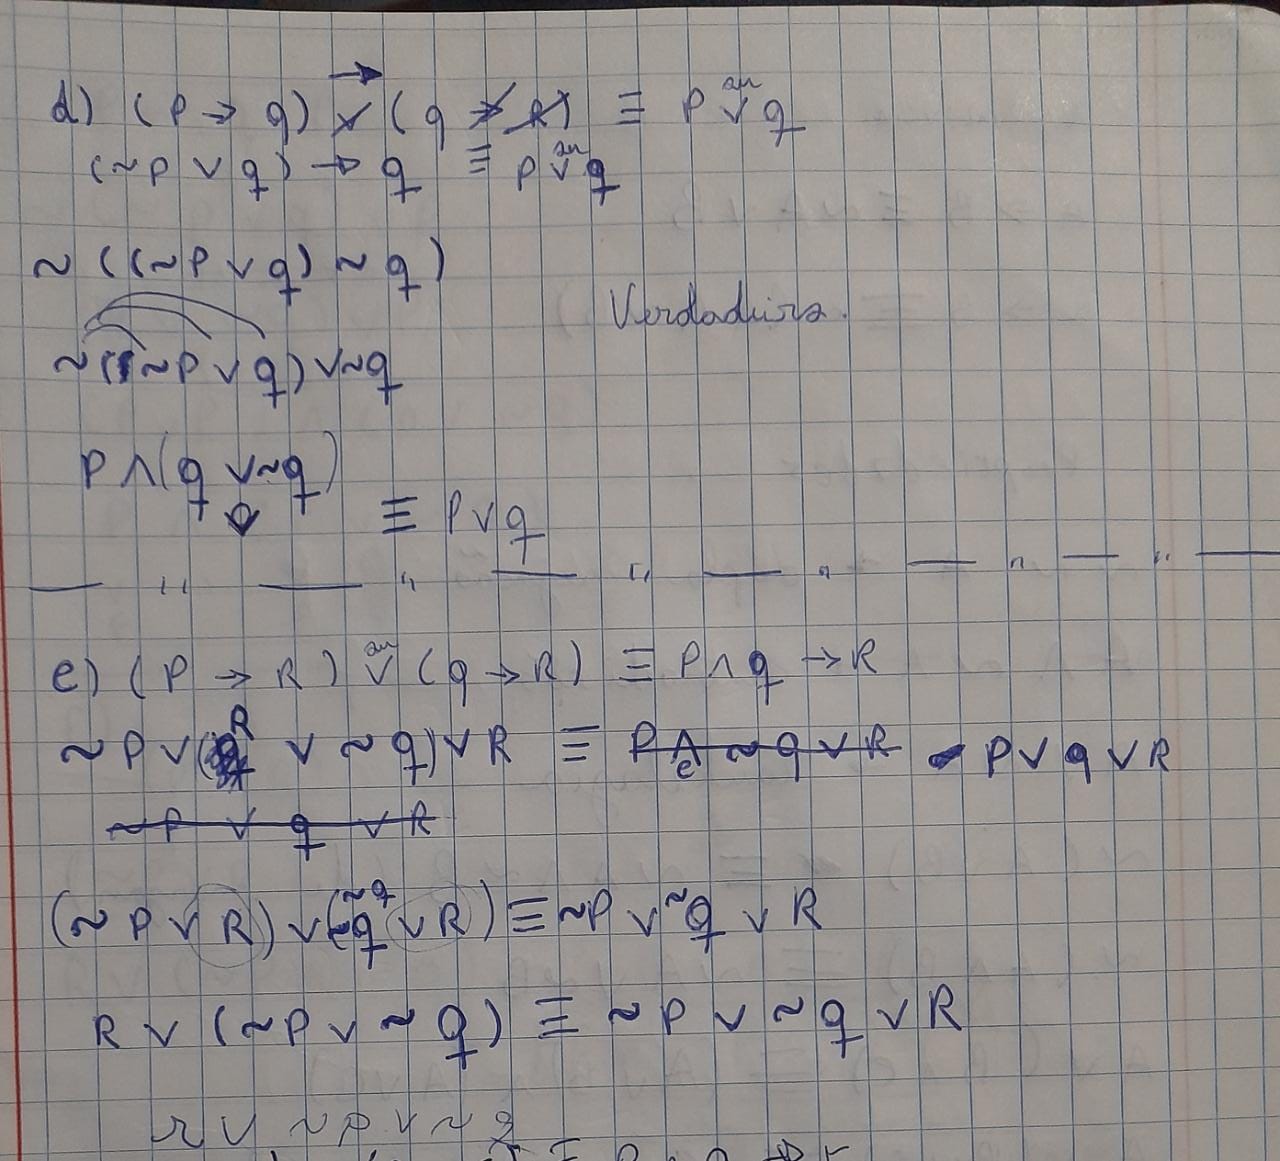 d) (P → q) → (q) ≡ P ∨ᵒᵘ q
(~P ∨ q) → q ≡ P ∨ᵒᵘ q
~((~P ∨ q) ~ q)
Verdadeira.
~(~P ∨ q) ∨ ~q
P ∧ (q ∨ ~q)
≡ P ∨ q
e) (P → R) ∨ᵒᵘ (q → R) ≡ P ∧ q → R
~P ∨ (R ∨ ~q) ∨ R ≡ P ∧ ~q ∨ R P ∨ q ∨ R
~P ∨ q ∨ R
(~P ∨ R) ∨ (~q ∨ R) ≡ ~P ∨ ~q ∨ R
R ∨ (~P ∨ ~q) ≡ ~P ∨ ~q ∨ R
r ∨ ~P ∨ ~q